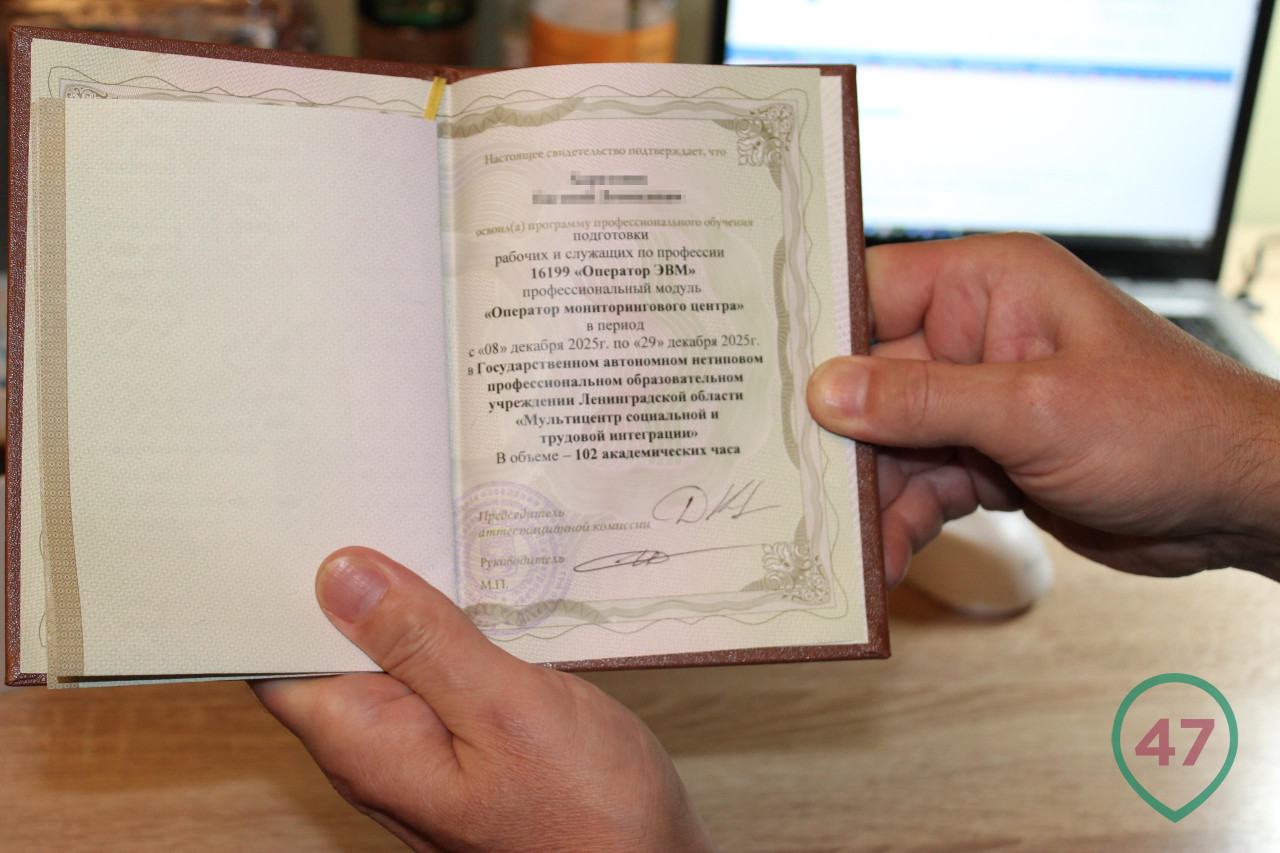 Настоящее свидетельство подтверждает, что
освоил(а) программу профессионального обучения
подготовки
рабочих и служащих по профессии
16199 «Оператор ЭВМ»
профессиональный модуль
«Оператор мониторингового центра»
в период
с «08» декабря 2025г. по «29» декабря 2025г.
в Государственном автономном нетиповом
профессиональном образовательном
учреждении Ленинградской области
«Мультицентр социальной и
трудовой интеграции»
В объеме – 102 академических часа
Председатель
аттестационной комиссии
Руководитель
М.П.
47